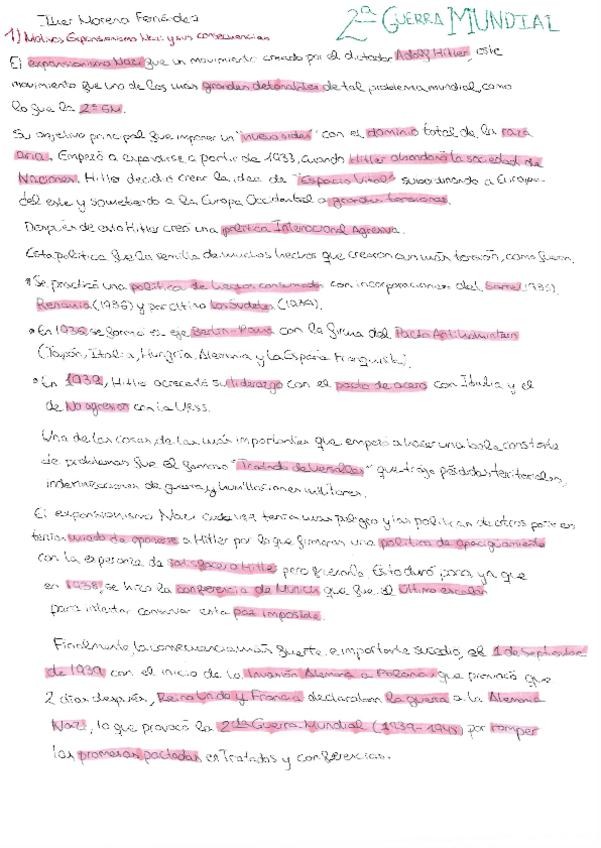 Iker Moreno Fernández
2ª GUERRA MUNDIAL
1) Motivos Expansionismo Nazi y sus consecuencias
El expansionismo Nazi fue un movimiento creado por el dictador Adolf Hitler, este
movimiento fue uno de los mas grandes detonables de tal problema mundial, como
lo fue la 2ª GM.
Su objetivo principal fue imponer un "nuevo orden" con el dominio total de la raza
aria. Empezó a expandirse a partir de 1933, cuando Hitler abandonó la sociedad de
Naciones. Hitler decidió crear la idea de "Espacio Vital" subordinando a Europa
del este y sometiendo a la Europa Occidental a grandes tensiones.
Después de esto Hitler creó una política Internacional Agresiva.
Esta política fue la semilla de muchos hechos que crearon aun más tensión, como fueron:
• Se practicó una política de hechos consumados con incorporaciones del Sarre (1935),
Renania (1936) y por último los Sudetes (1938).
• En 1936 se formó el eje Berlin-Roma con la firma del Pacto Antikomintern
(Japón, Italia, Hungría, Alemania y la España Franquista).
• En 1939, Hitler acrecentó su liderazgo con el pacto de acero con Italia y el
de No agresión con la URSS.
Una de las cosas de las más importantes que empezó a hacer una bola constante
de problemas fue el famoso "Tratado de Versalles" que trajo pérdidas territoriales,
indemnizaciones de guerra y humillaciones militares.
El expansionismo Nazi cada vez tenía mas peligro y las políticas de otros países
tenían miedo de oponerse a Hitler por lo que firmaron una política de apaciguamiento
con la esperanza de satisfacer a Hitler pero Esto duró poco, ya que
en 1938, se hizo la conferencia de Munich que fue el último escalón
para intentar conservar esta paz imposible.
Finalmente, la consecuencia más fuerte e importante sucedió, el 1 de Septiembre
de 1939 con el inicio de la Invasión Alemana a Polonia, que provocó que
2 días después, Reino Unido y Francia declararan la guerra a la Alemania
Nazi, lo que provocó la 2da Guerra Mundial (1939-1945) por romper
las promesas pactadas en Tratados y conferencias.